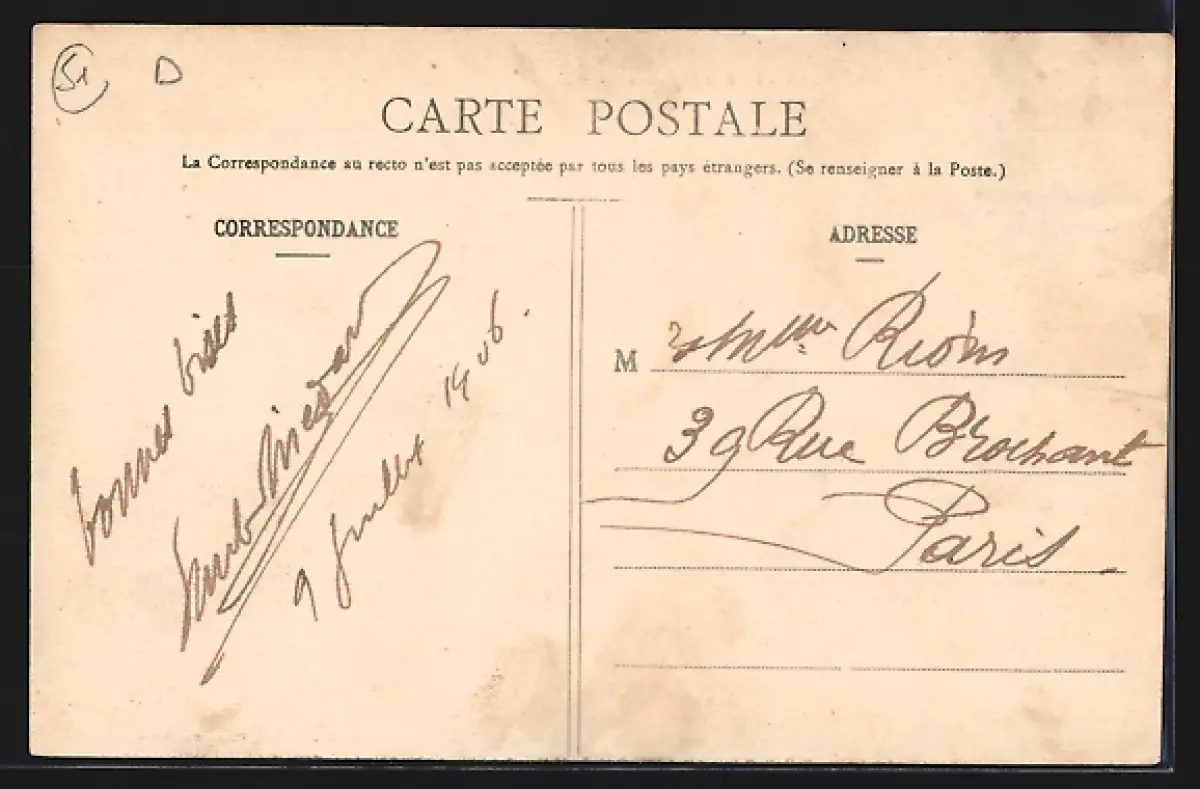 51 D
CARTE POSTALE
La Correspondance au recto n'est pas acceptée par tous les pays étrangers. (Se renseigner à la Poste.)
CORRESPONDANCE
bonnes bises
9 Juillet 1906.
ADRESSE
M Rióm
39 Rue Brochant
Paris.